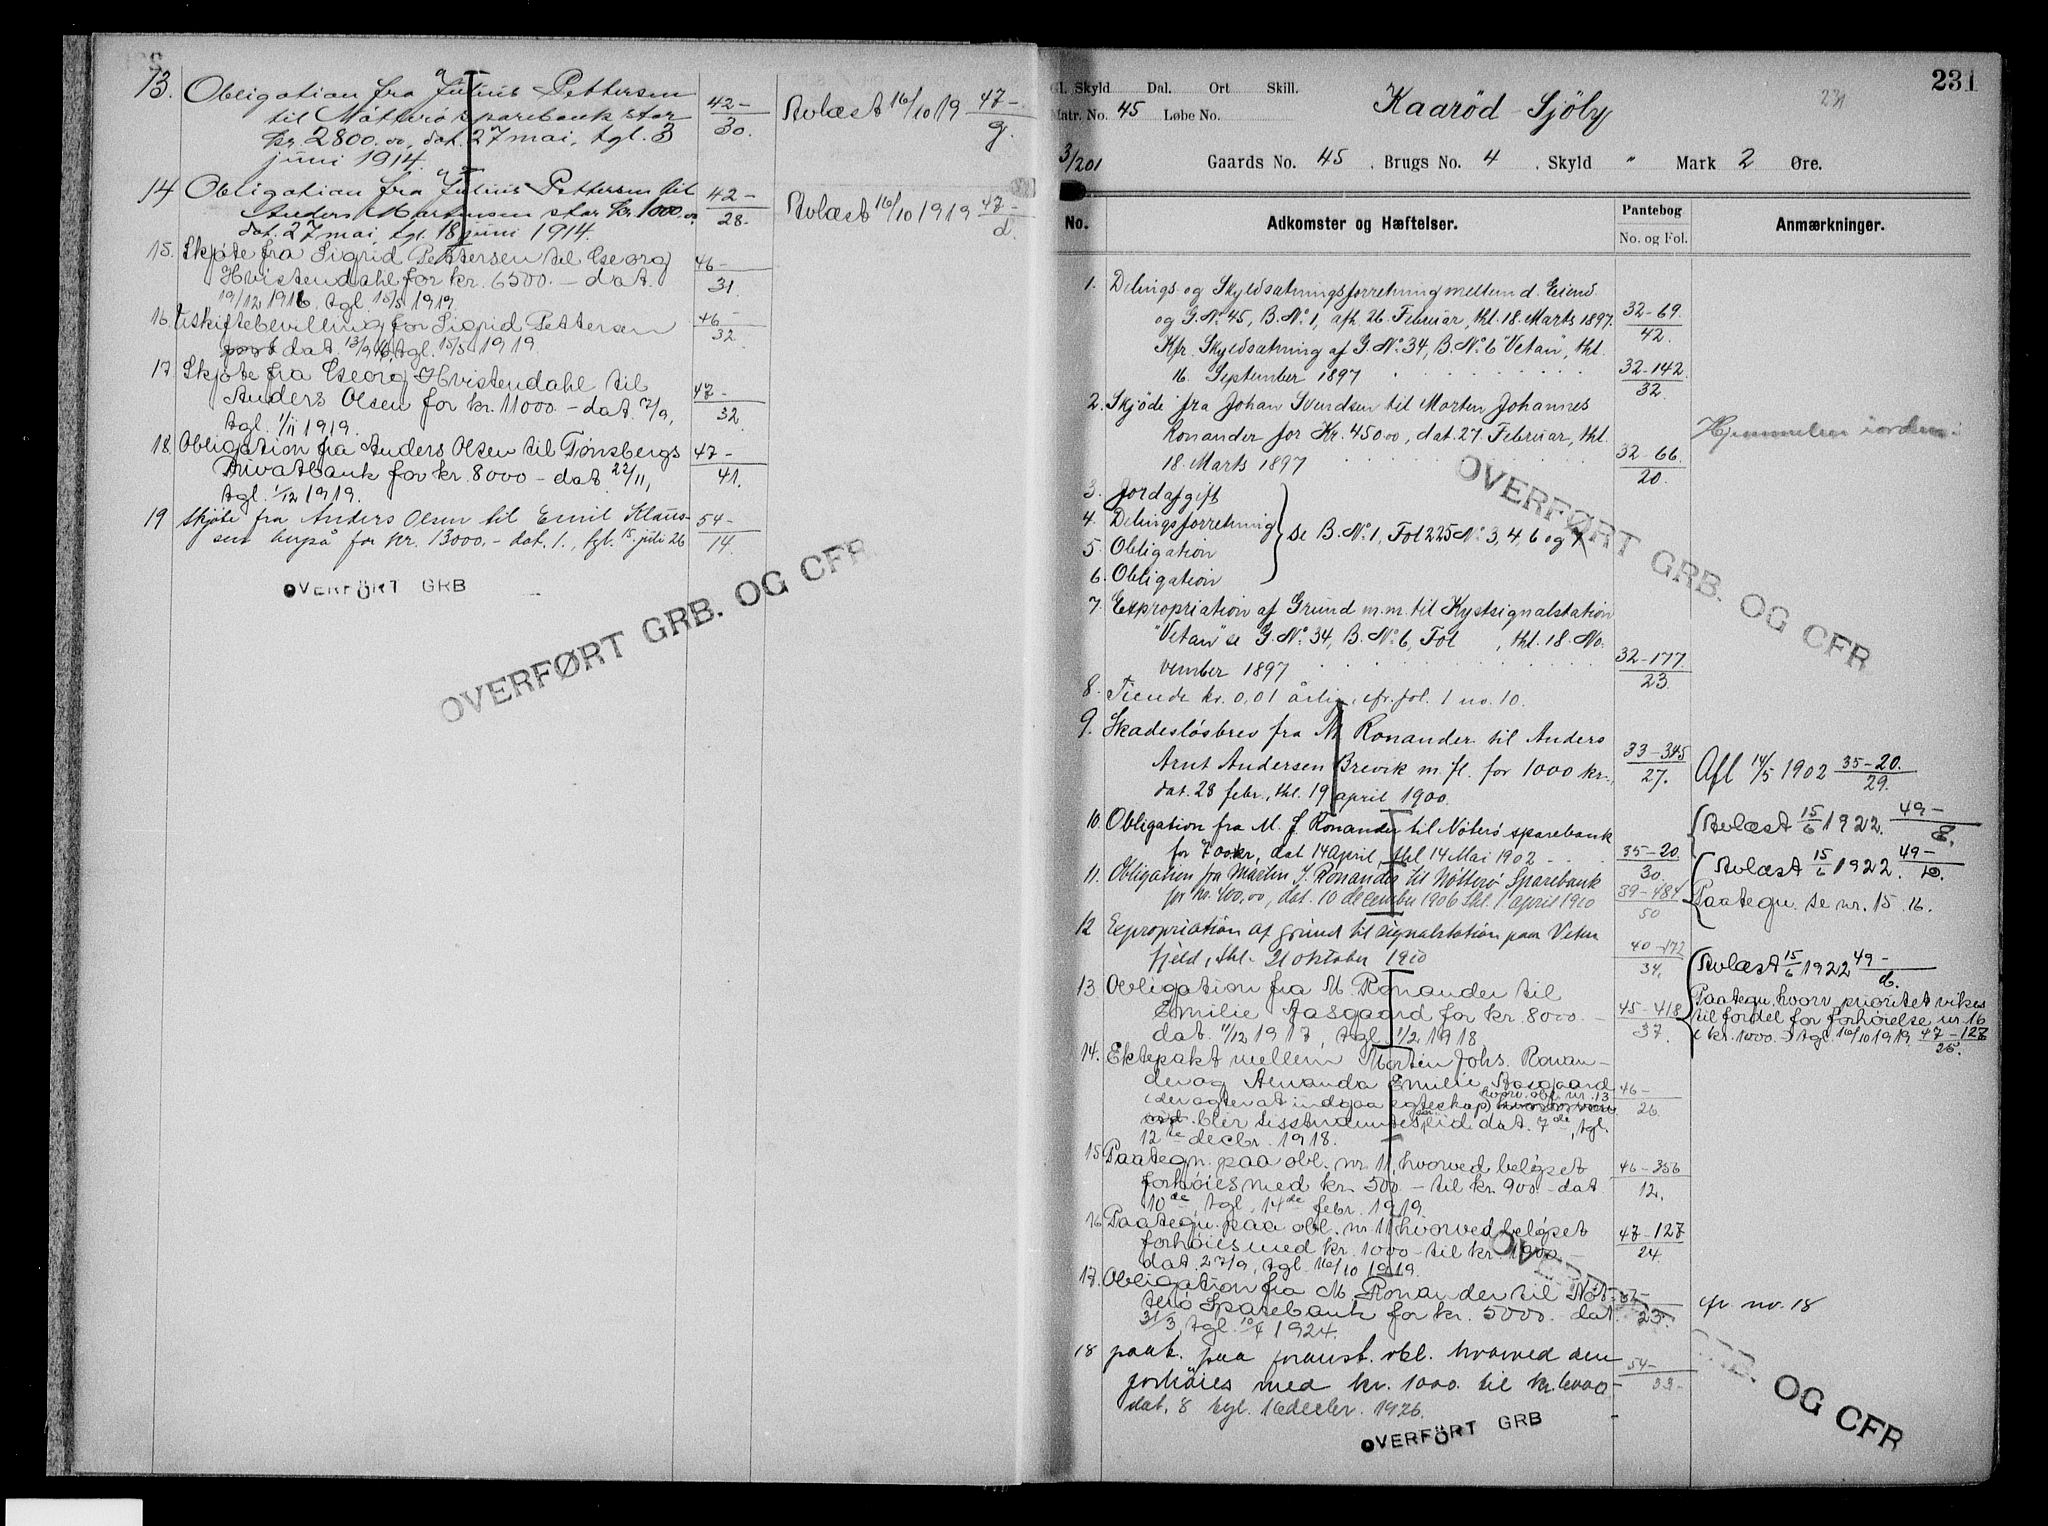 13. Obligation fra Julius Pettersen
til Nøtterø sparebank stor
kr. 2800.00, dat. 27 mai, tgl. 3
juni 1914.
42 –
30.
Avlæst 16/10 19
47 –
g.
14 Obligation fra Julius Pettersen til
Anders Martinsen stor kr. 1000.00
dat. 27 mai, tgl. 18 juni 1914.
42 –
28.
Avlæst 16/10 1919
47 –
d.
15. Skjøte fra Sigrid Pettersen til Georg
Hvistendahl for kr. 6500. – dat.
19/12 1916, tgl 15/5 1919.
46 –
31.
16. Uskiftebevilling for Sigrid Pettersen
dat. 13/9 16, tgl. 15/5 1919.
46 –
32.
17. Skjøte fra Georg Hvistendahl til
Anders Olsen for kr. 11000. – dat. 2/9,
tgl. 1/11 1919.
47 –
32.
18. Obligation fra Anders Olsen til Tønsbergs
Privatbank for kr. 8000 – dat. 22/11,
tgl. 1/12 1919.
47 –
41.
19 Skjøte fra Anders Olsen til Emil Klaus-
sen herpå for kr. 13000.– dat. 1., tgl. 15. juli 26
54 –
14.
OVERFÖRT GRB
OVERFØRT GRB. OG CFR
231
231
Gl. Skyld Dal. Ort Skill.
Kaarød – Sjöby
Matr. No. 45 Løbe No.
3/201
Gaards No. 45. Brugs No. 4. Skyld " Mark 2 Øre.
No.
Adkomster og Hæftelser.
Pantebog
No. og Fol.
Anmærkninger.
1. Delings og Skyldsætningsforretning mellem d. Eiend.
og G. No. 45, B. No. 1, afh. 26. Februar, thl. 18. Marts 1897.
32–69.
42.
Kfr. Skyldsætning af G. No. 34, B. No. 6 "Vetan", thl.
16. September 1897
32–142.
32.
2. Skjøde fra Johan Svendsen til Morten Johannes
Ronander for Kr. 450.00, dat. 27. Februar, thl.
18. Marts 1897
32–66.
20.
Hjemmelen iorden.
3. Jordafgift
4. Delingsforretning
5. Obligation
6. Obligation
se B. No. 1, Fol 225 No. 3, 4 6 og 7
OVERFØRT GRB. OG CFR
7. Expropriation af Grund m.m. til Kystsignalstation
"Vetan" se G. No. 34, B. No. 6, Fol , thl. 18. No-
vember 1897
32–177.
23.
8. Tiende kr. 0,01 årlig, cfr. fol. 1 no. 10.
9. Skadesløsbrev fra M Ronander til Anders
Arnt Andersen Brevik m. fl. for 1000 kr.,
dat. 28 febr., thl. 19 april 1900.
33–345
27.
Afl 14/5 1902 35–20.
29.
10. Obligation fra M. J. Ronander til Nøterø sparebank
for 700 kr, dat 14 April, thl 14 Mai 1902
35–20.
30.
Avlæst 15/6 1922. 49 –
11. Obligation fra Martin J. Ronander til Nøtterø Sparebank
for kr. 400,00, dat. 10 december 1906 thl. 1 april 1910
39–484
50
Avlæst 15/6 1922. 49 –
Paategn. se nr. 15. 16.
12 Expropriation af grund til signalstation paa Veten
fjeld, thl. 21 oktober 1910
40–172
34.
13 Obligation fra M. Ronander til
Emilie Aasgaard for kr. 8000. –
dat. 11/12 1917, tgl. 1/2 1918
45–418
37.
Avlæst 15/6 1922 49 –
d.
Paategn. hvorv. prioritet vikes
til fordel for forhøielse nr. 16
( kr. 1000. –) tgl. 16/10 1919 47–127
25.
14. Ektepakt mellem Morten Johs. Ronan-
der og Amanda Emilie Aasgaard
(der agter at indgaa egteskap) hvorv. obl. nr. 13
blir dat. 7de, tgl.
12te decbr. 1918.
46 –
26.
15 Paategn. paa obl. nr. 11, hvorved beløpet
forhøies med kr. 500. – til kr. 900. – dat
10de, tgl. 14de febr. 1919.
46–356
12.
16 Paategn. paa obl. nr 11 hvorved beløpet
forhøies med kr. 1000 – til kr. 1900. –
dat. 27/9, tgl. 16/10 1919.
47–127
24
17. Obligation fra M. Ronander til Nøt-
terø Sparebank for kr. 5000. dat.
31/3, tgl. 10/4 1924.
23.
cfr no. 18
18 paat. paa foranst. obl. hvorved den
forhøies med kr. 1000. til kr. 6000 –
dat. 8 tgl. 16 decbr. 1926.
54 –
33 –
OVERFØRT GRB. OG CFR
OVERFÖRT GRB